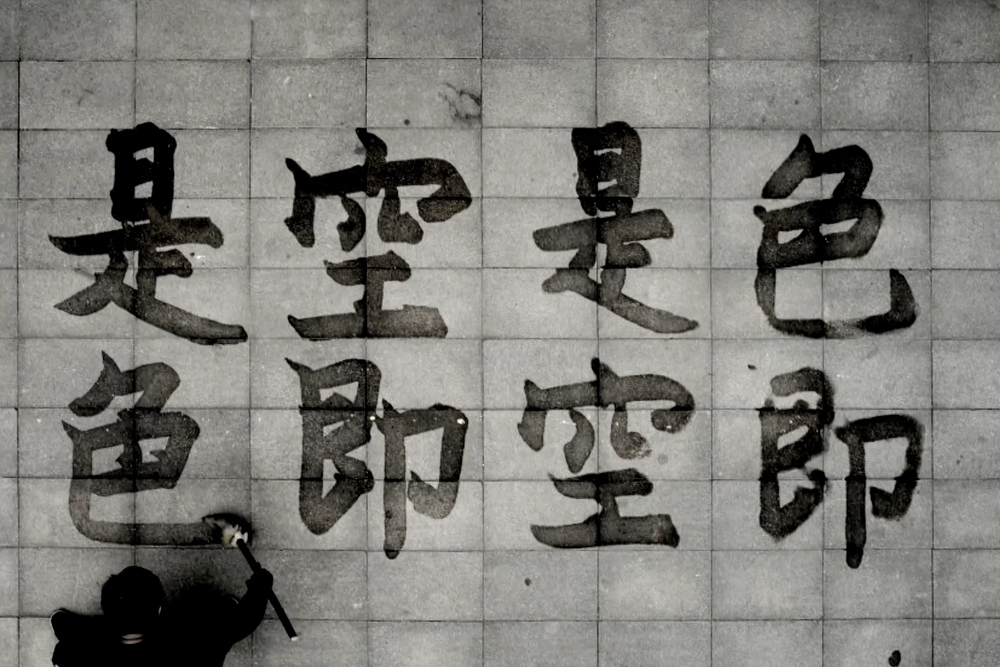 色即
是空
空即
是色